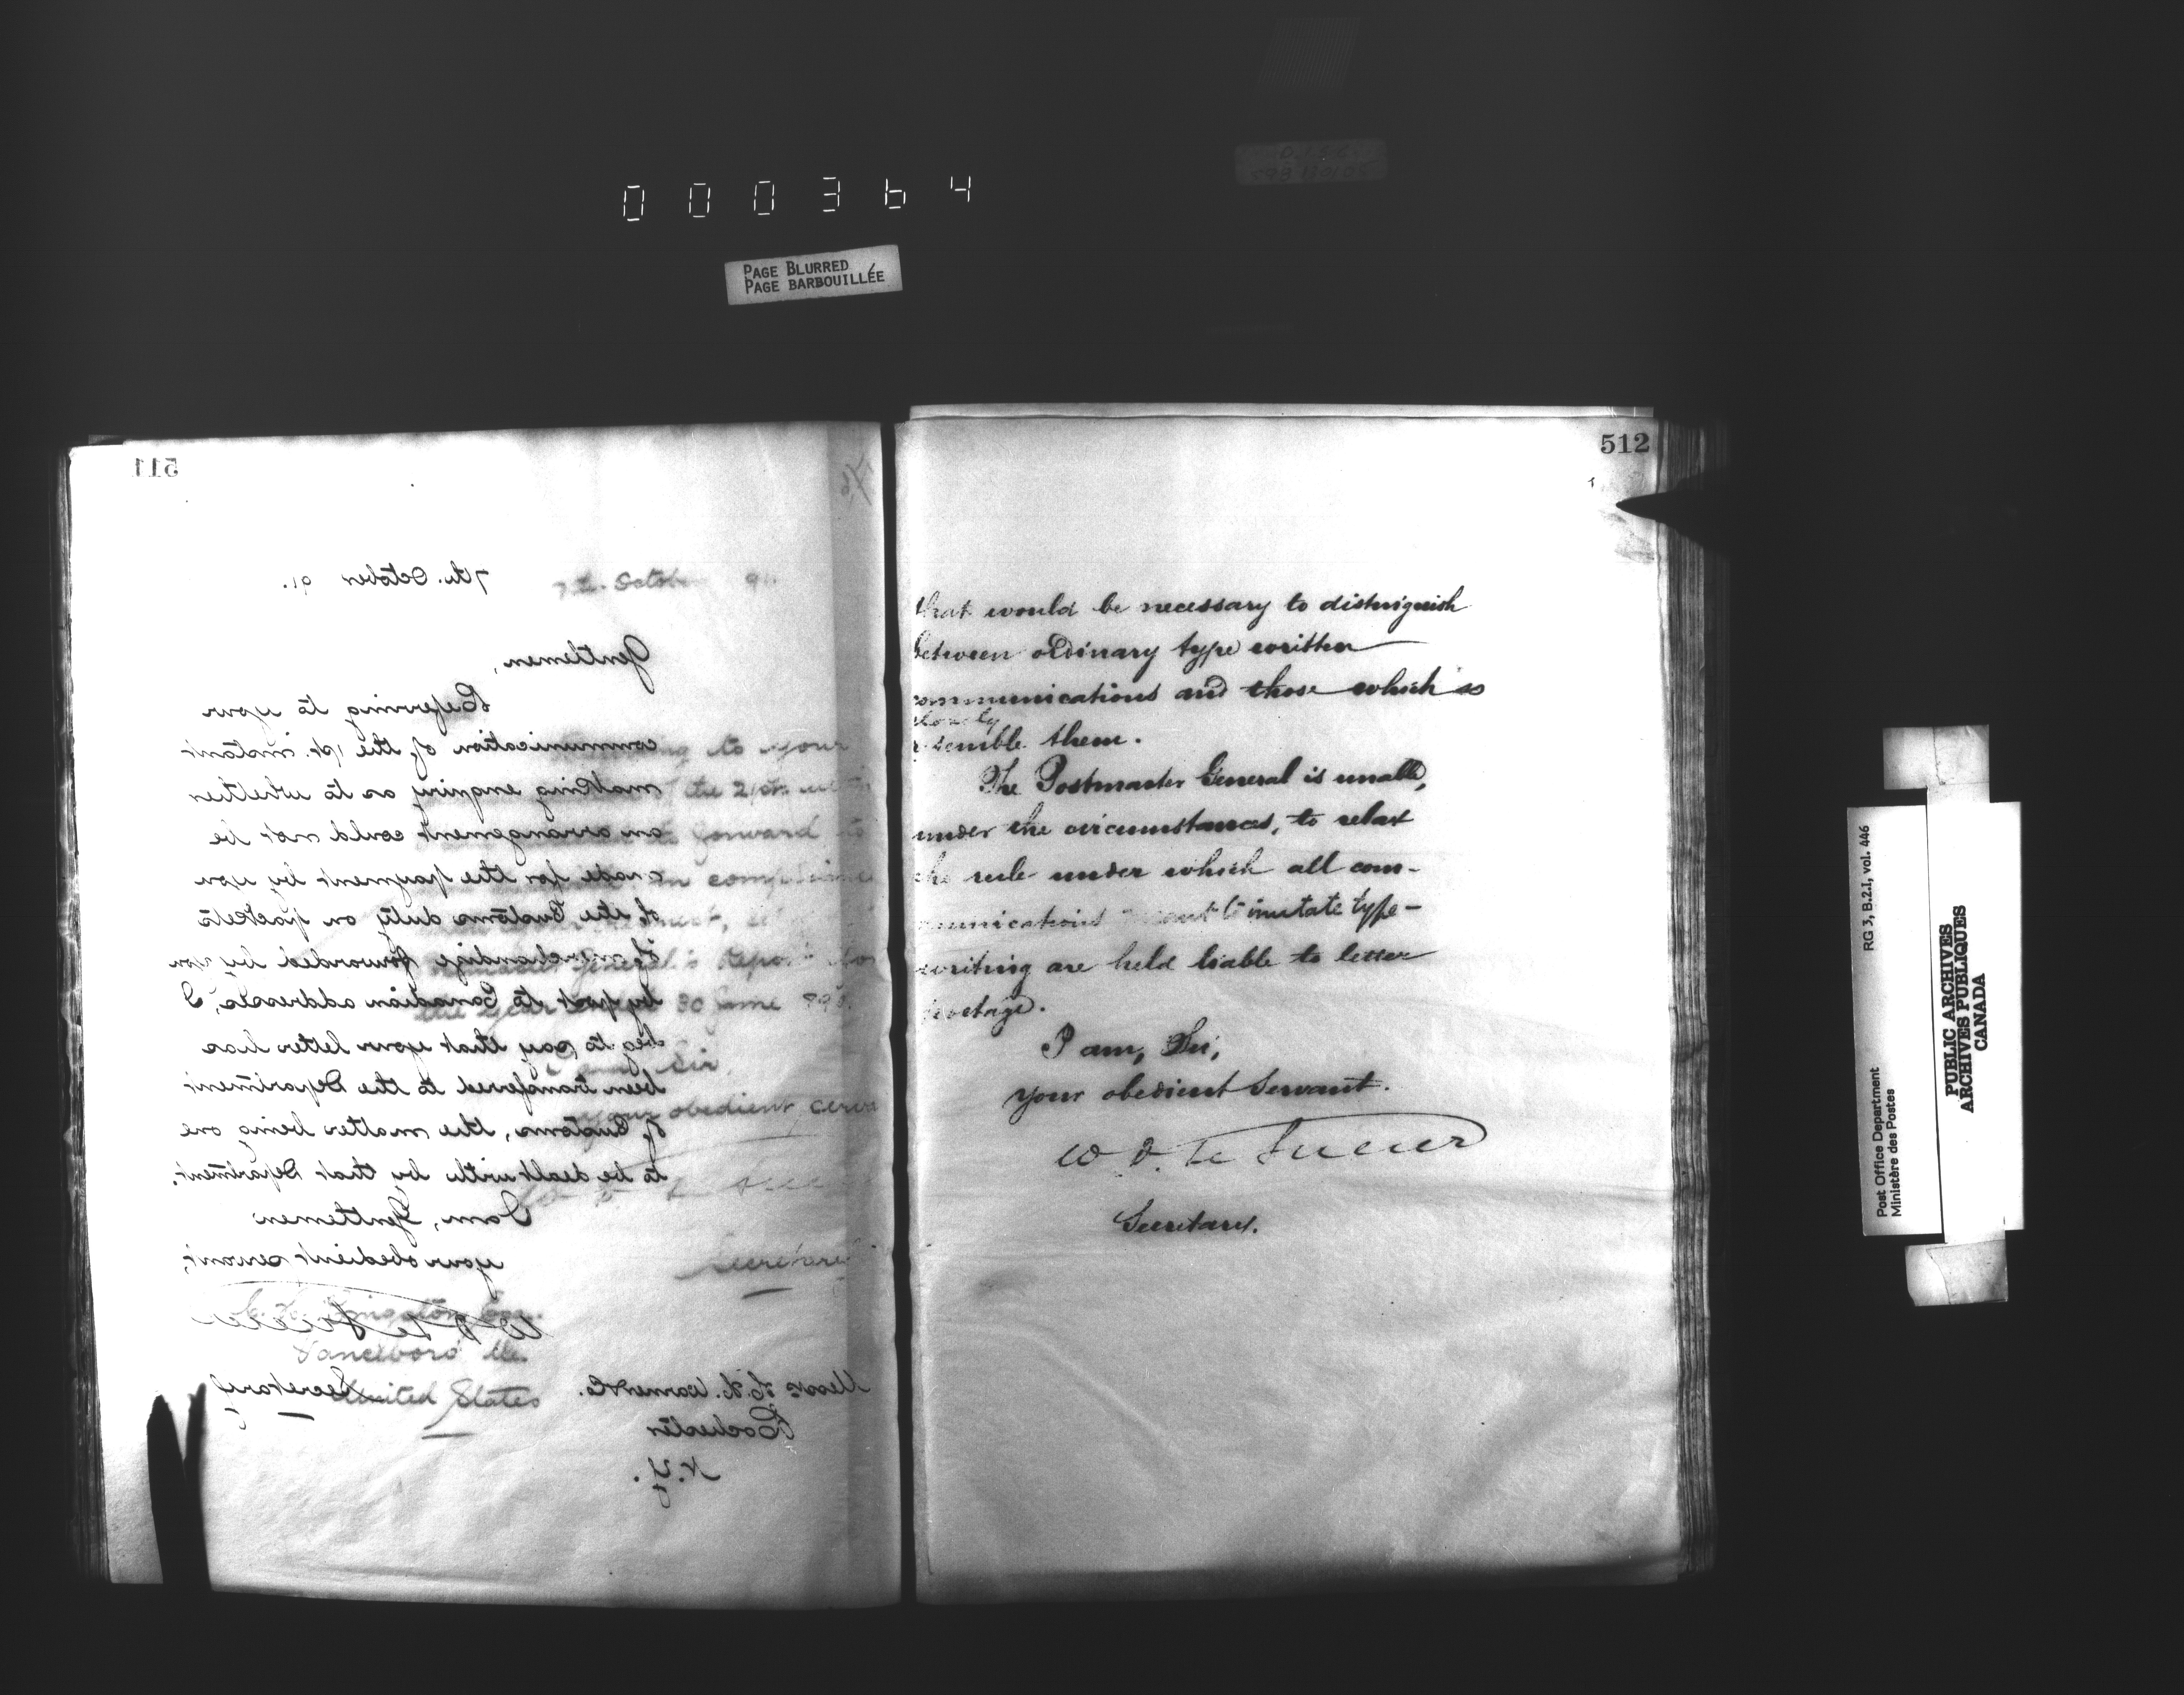 000364
PAGE BLURRED
PAGE BARBOUILLÉE
511
7th. October 91.
Gentlemen,
Referring to your
communication of the 1st. instant
making enquiry as to whether
an arrangement could not be
made for the payment by you
of the Customs duty on packets
of merchandize forwarded by you
by post to Canadian addresses, I
beg to say that your letter has
been transferred to the Department
of Customs, the matter being one
to be dealt with by that Department.
I am, Gentlemen
your obedient servant,
W D Le Sueur
Secretary
Messrs H. H. Warner & Co.
Rochester
N.Y.
7th. October 91
to your
the 21st
forward to
in compliance
General's Report for
the year 30 June 1890.
Sir,
your obedient
Secretary
Esq.
Vanceboro' Me.
United States
512
that would be necessary to distinguish
between ordinary type written
communications and those which so
closely
resemble them.
The Postmaster General is unable,
under the circumstances, to relax
the rule under which all com-
munications to imitate type-
writing are held liable to letter
postage.
I am, Sir,
your obedient Servant.
W D. Le Sueur
Secretary.
RG 3, B.2.1, vol. 446
Post Office Department
Ministère des Postes
PUBLIC ARCHIVES
ARCHIVES PUBLIQUES
CANADA